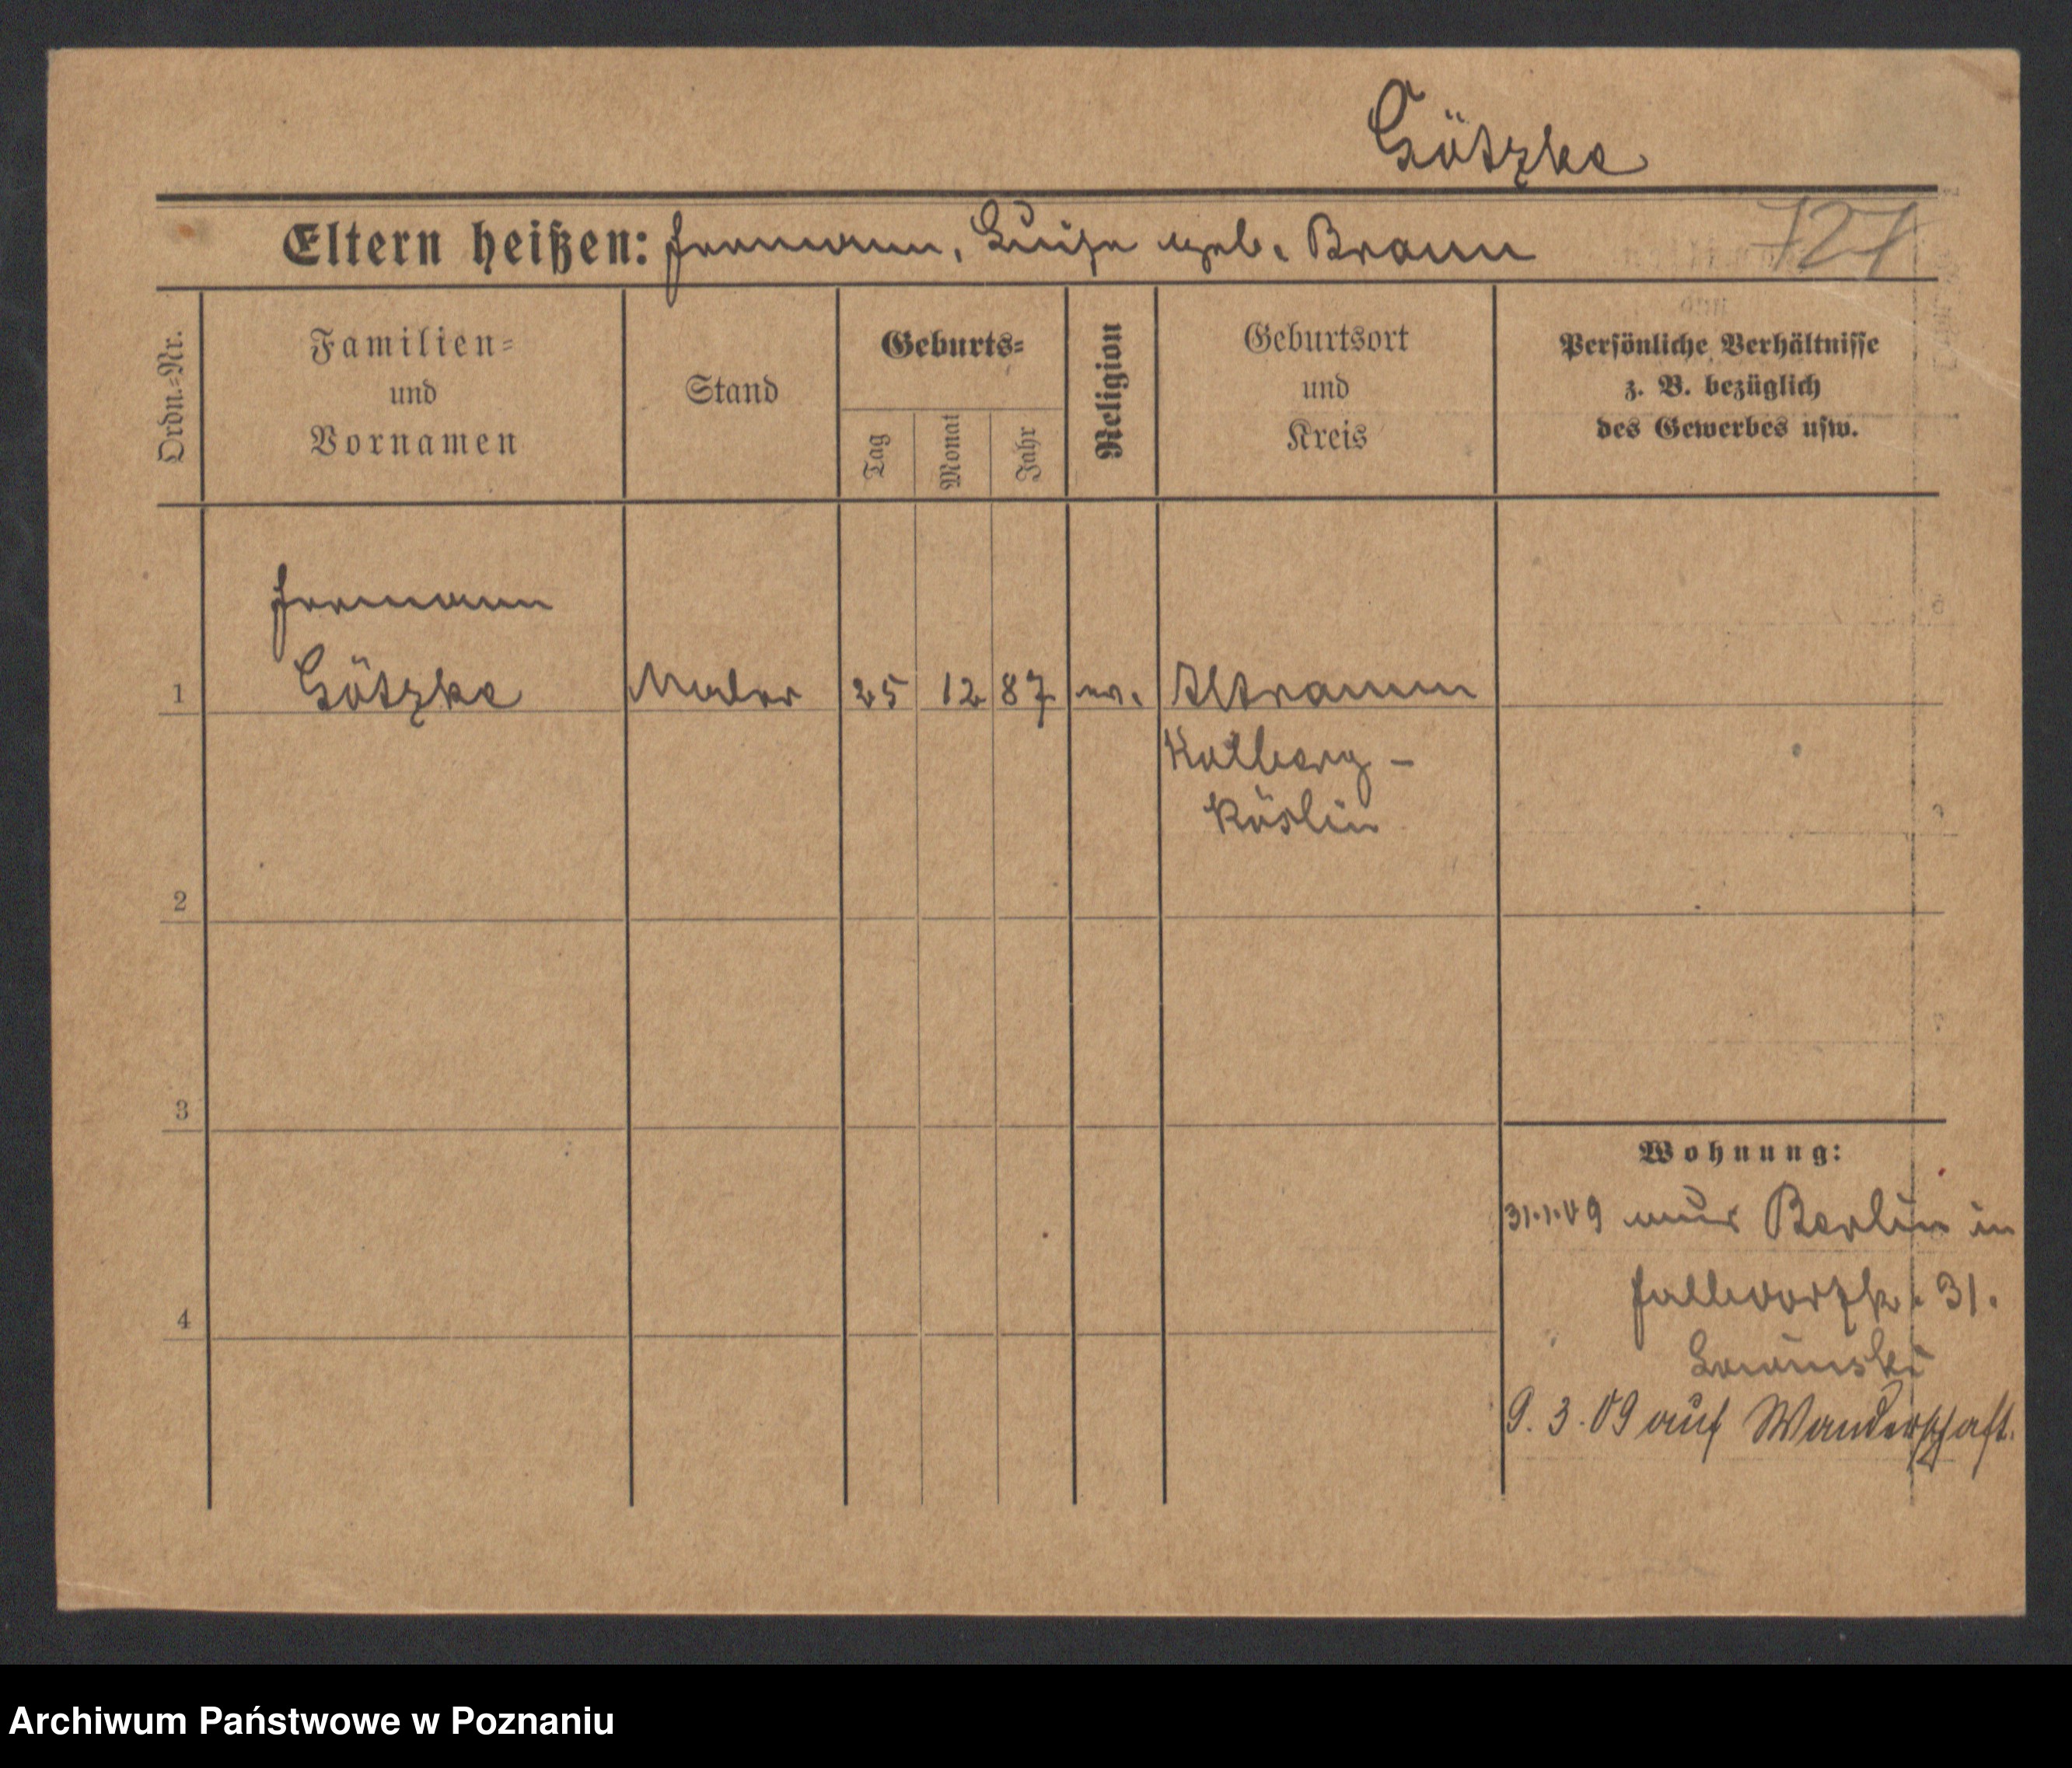 Götzke
Eltern heißen: Hermann, Luise geb. Braun
727
Ordn.-Nr.
Familien-
und
Vornamen
Stand
Geburts-
Tag
Monat
Jahr
Religion
Geburtsort
und
Kreis
Persönliche Verhältnisse
z. B. bezüglich
des Gewerbes usw.
Hermann
1 Götzke Maler 25 12 87 ev. Altramm
Kolberg -
Köslin
2
3
4
Wohnung:
31.1.09 aus Berlin in
Halbdorfstr. 31.
9.3.09 auf Wanderschaft.
Archiwum Państwowe w Poznaniu